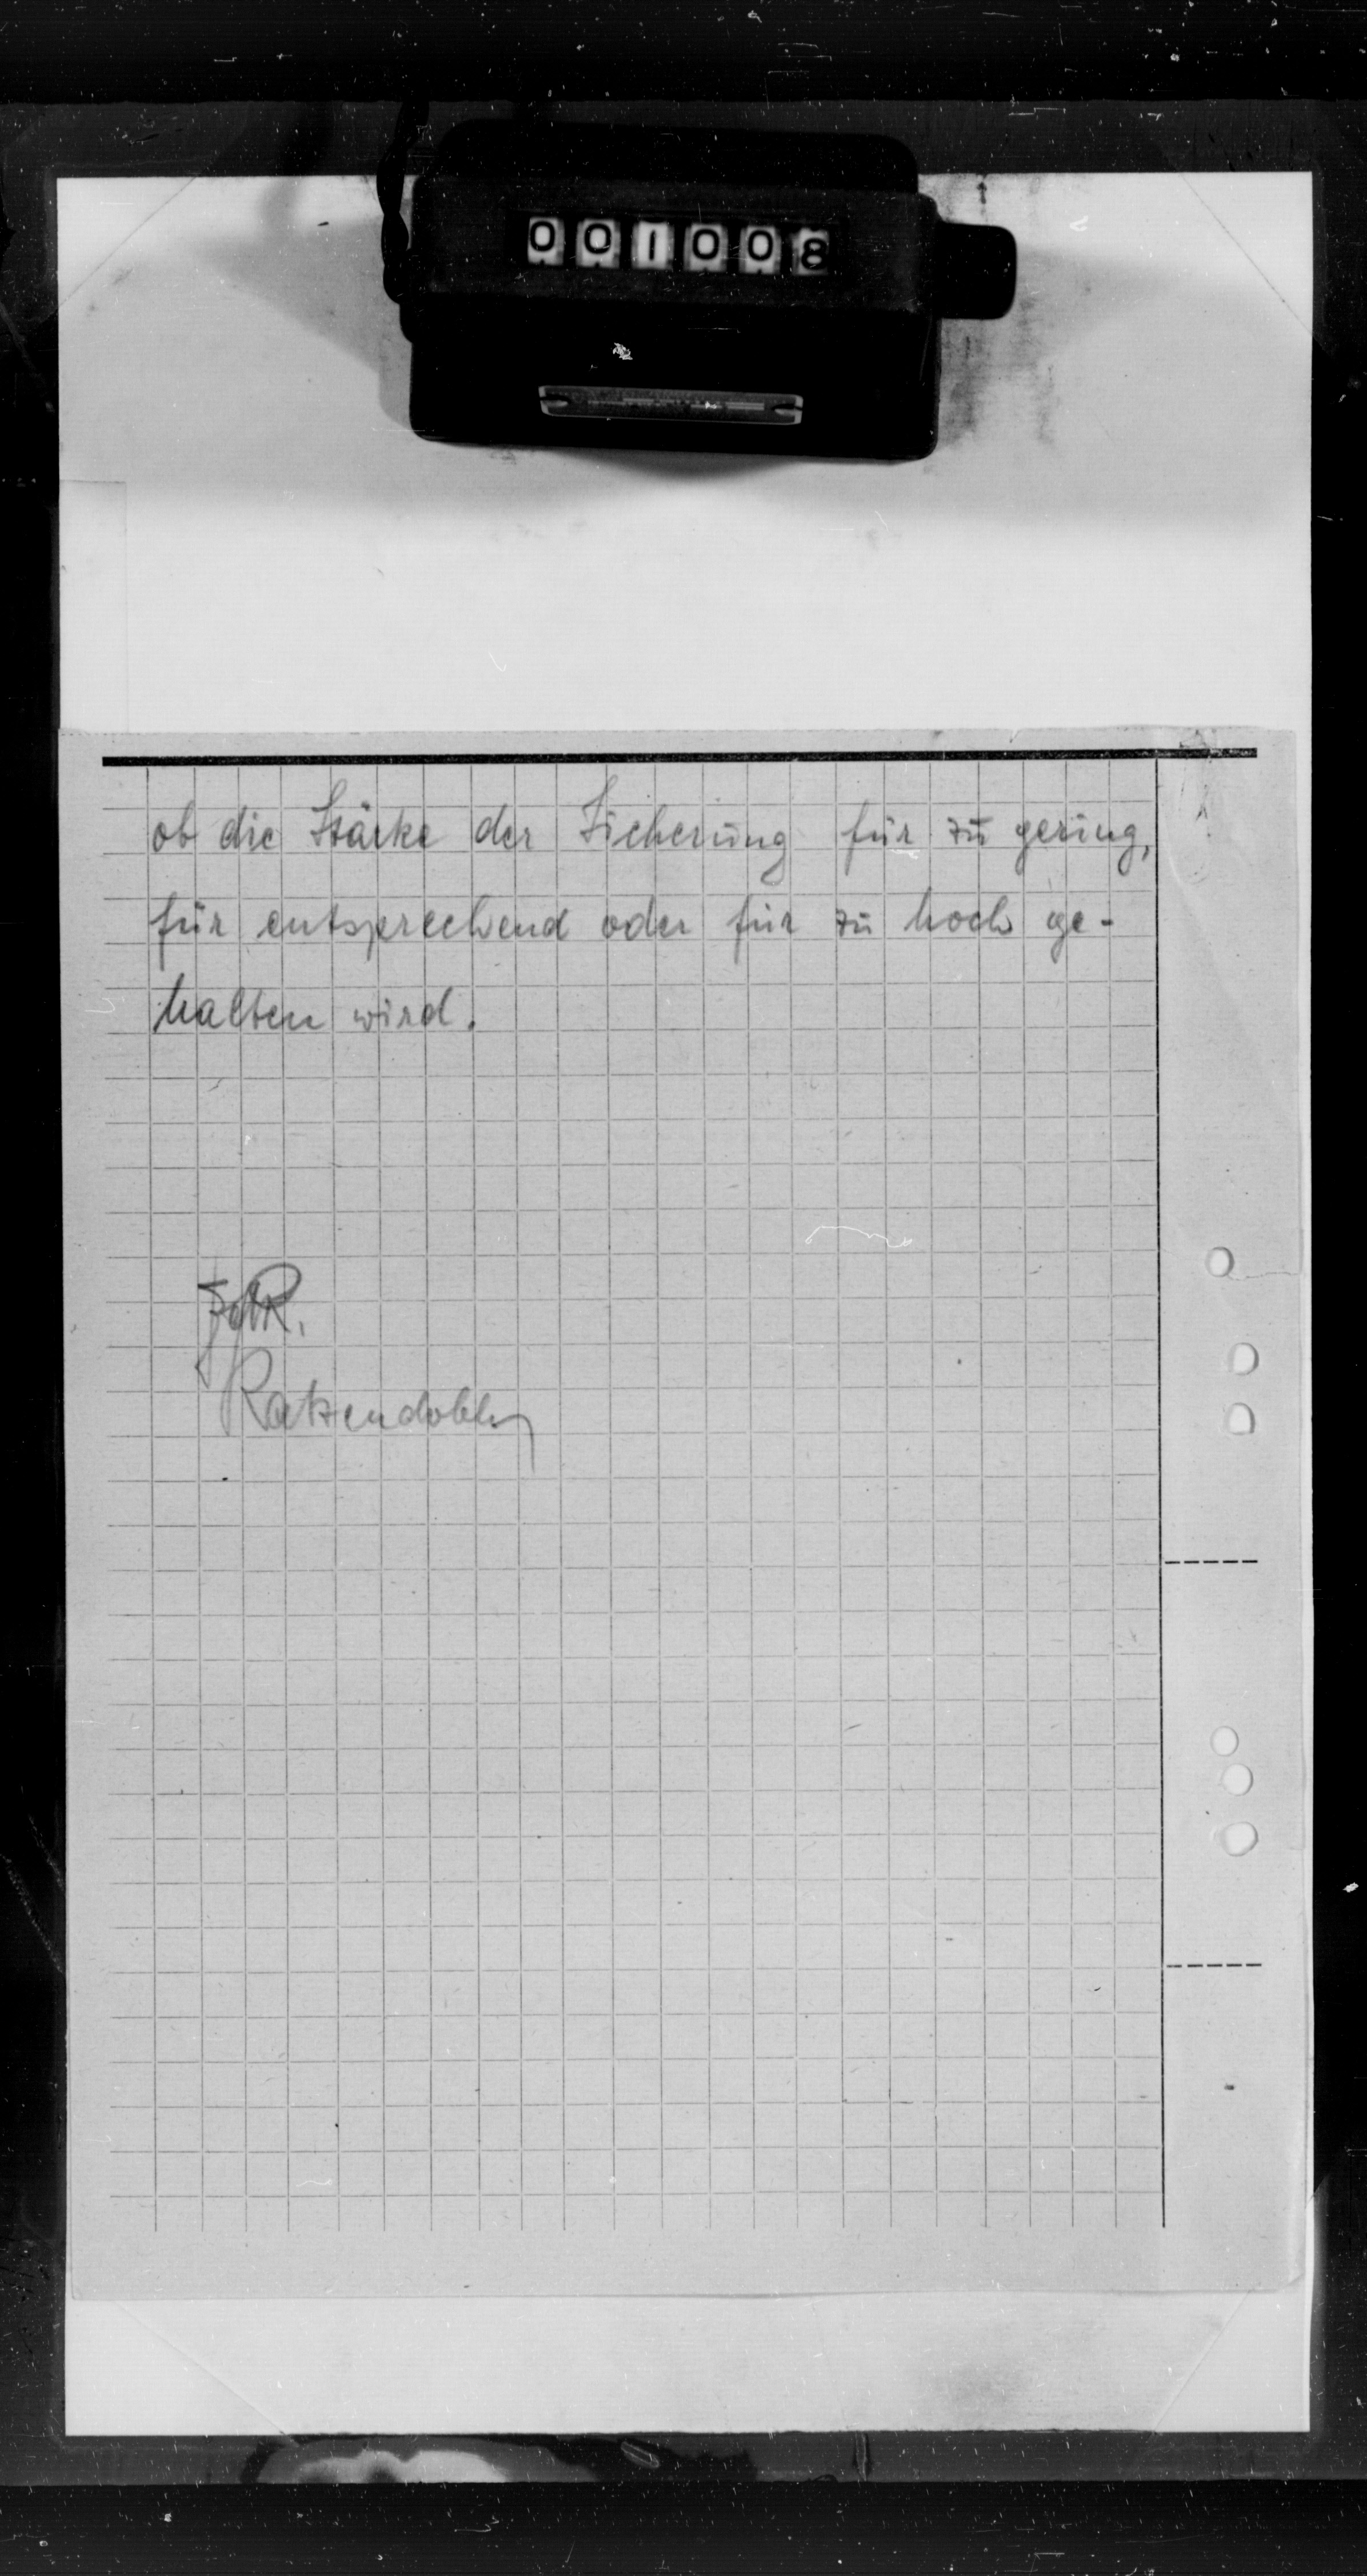 001008
ob die Stärke der Sicherung für zu gering,
für entsprechend oder für zu hoch ge-
halten wird.